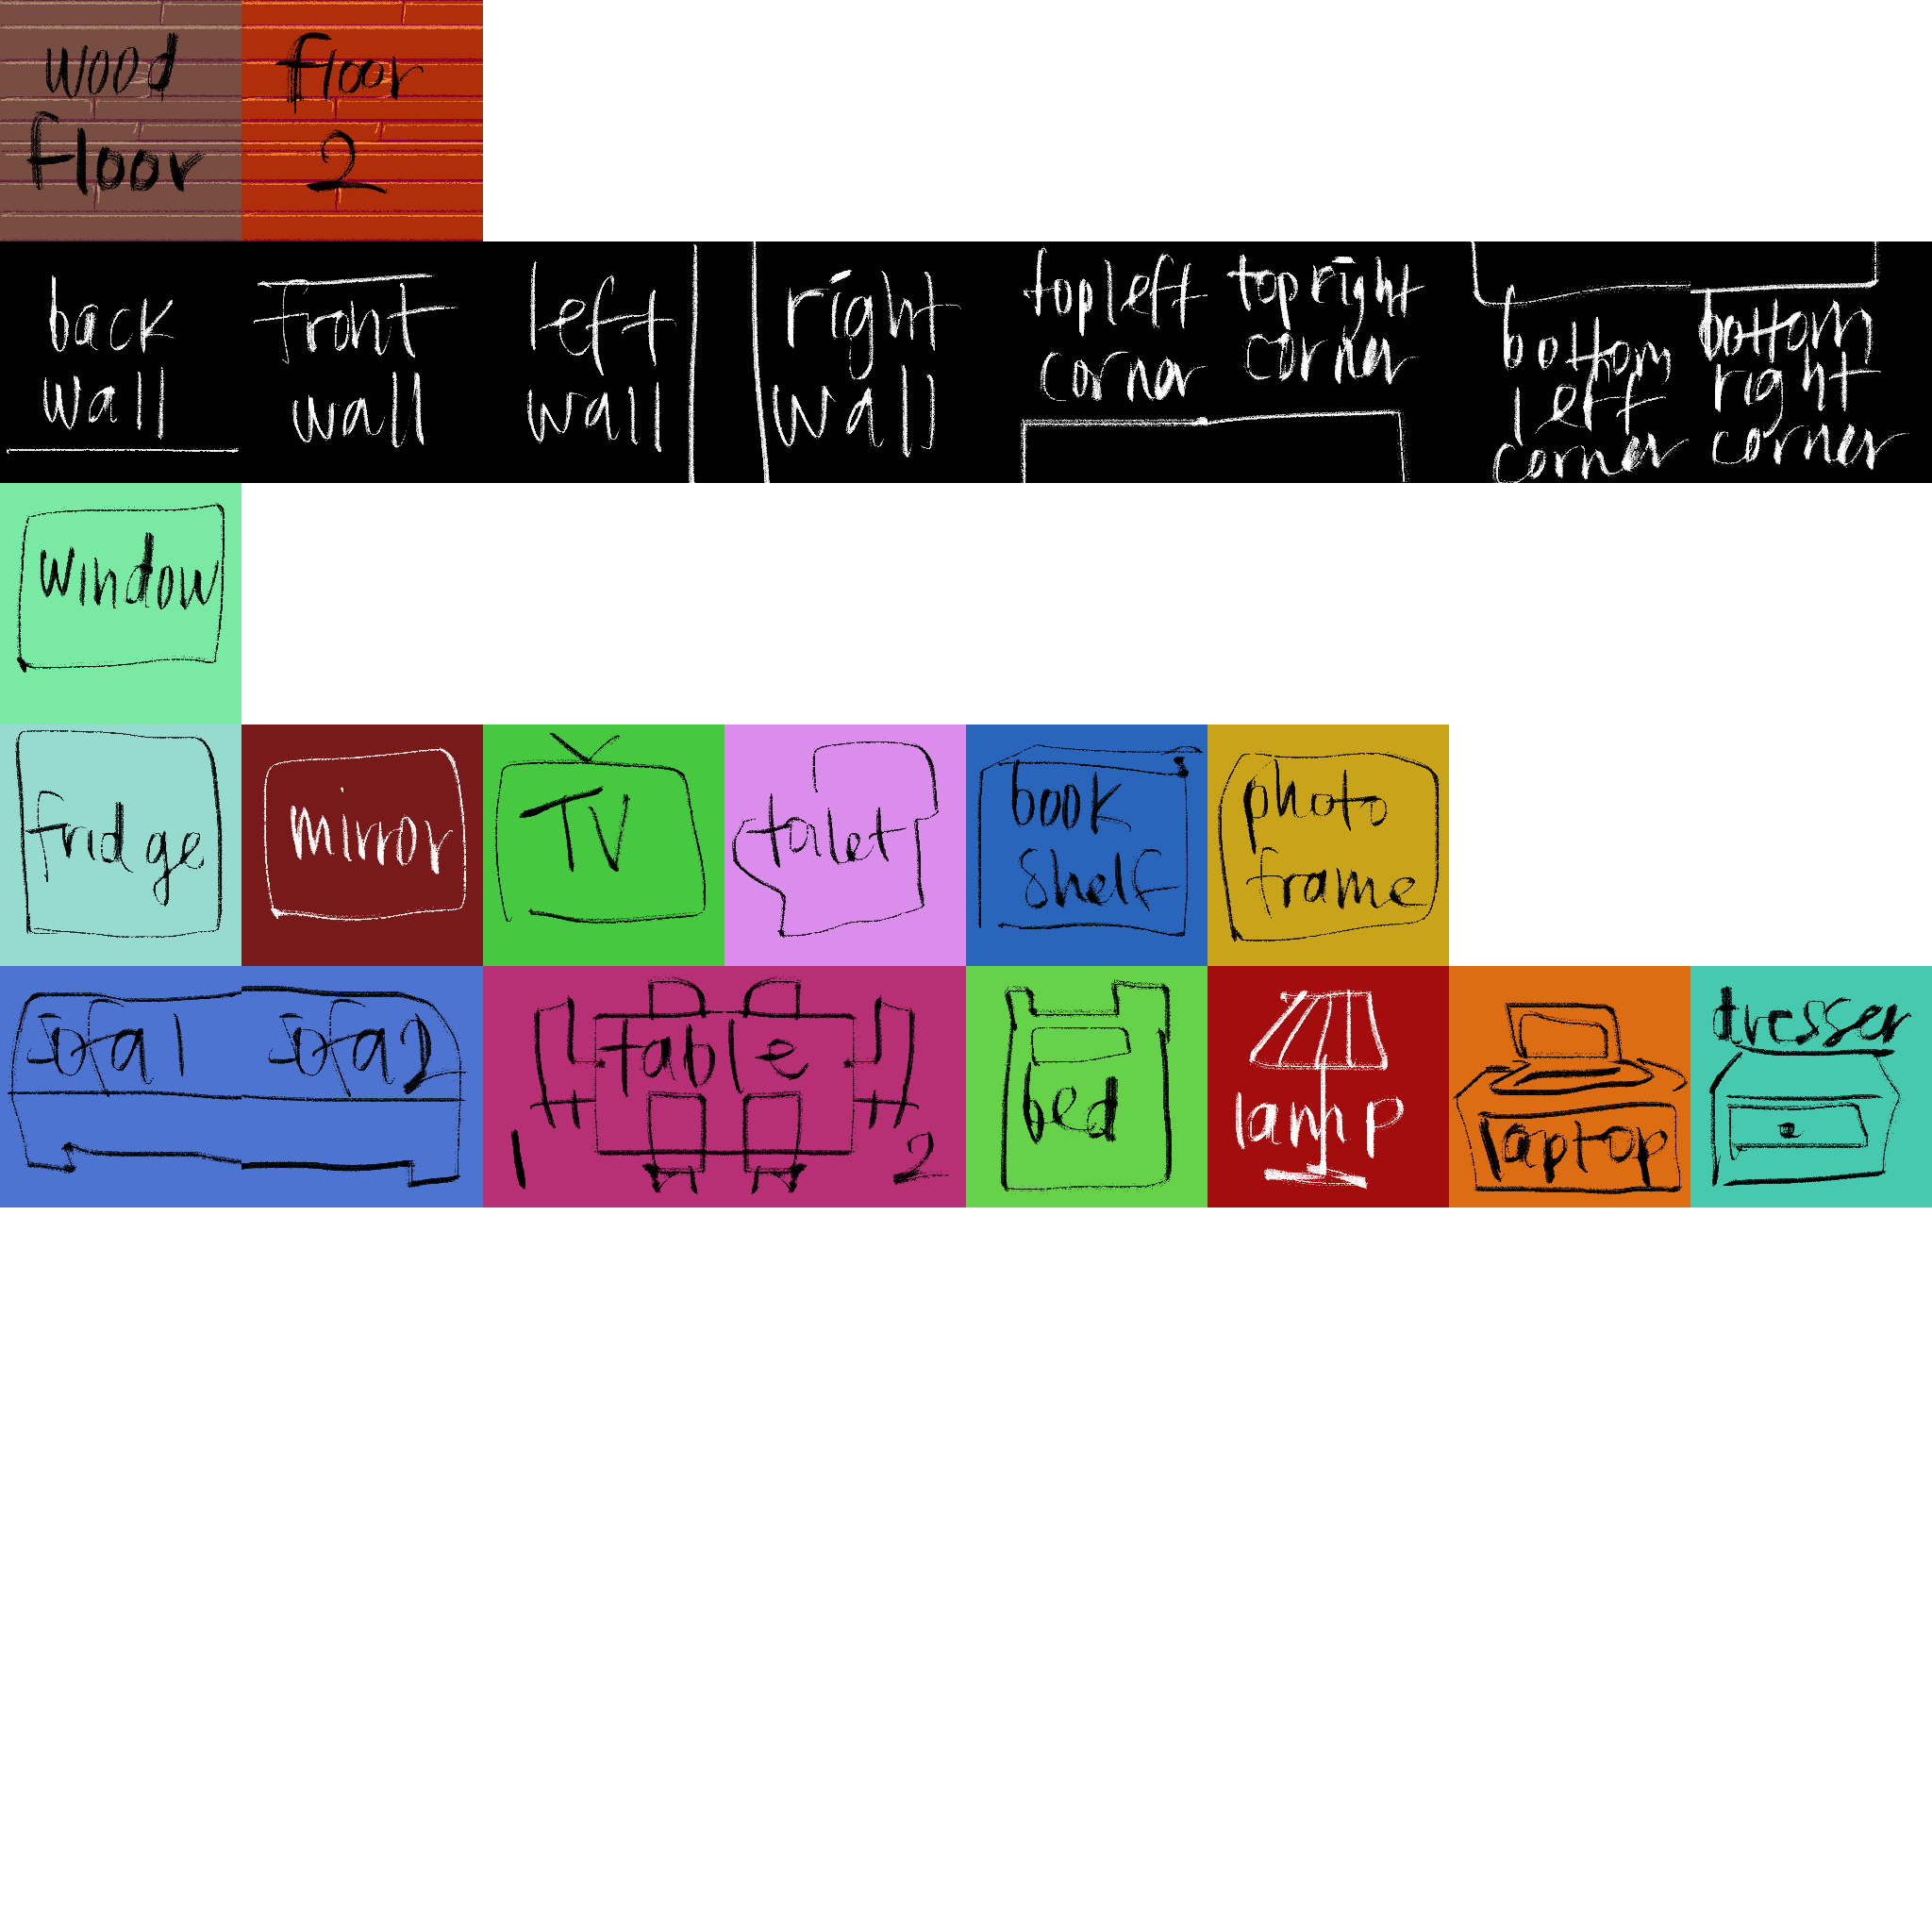 wood
floor
floor
2
back
wall
front
wall
left
wall
right
wall
top left
corner
top right
corner
bottom
left
corner
bottom
right
corner
window
fridge
mirror
TV
toilet
book
shelf
photo
frame
sofa 1
sofa 2
table
1
2
bed
lamp
laptop
dresser